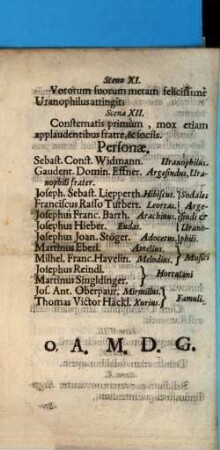 Scena XI.
Votorum suorum metam felicissimè
Uranophilus attingit:
Scena XII.
Consternatis primùm, mox etiam
applaudentibus fratre, & sociis.
Personæ,
Sebast. Const. Widmann. Uranophilus.
Gaudent. Domin. Effner. Argesindus, Ura-
nophili frater.
Joseph. Sebast. Liepperth. Hibiscus. Sodales
Franciscus Rasso Turbert. Leorras. Arge-
Josephus Franc. Barth. Arachinus. sindi &
Josephus Hieber. Eudas. Urano-
Josephus Joan. Stöger. Adocetus. phili.
Martinus Eberl. Amelius. Musici
Milhel. Franc. Havelin. Melodius.
Josephus Reindl. Hortulani
Martinus Singldinger.
Jos. Ant. Oberpaur. Mirmillus. Famuli.
Thomas Victor Häckl. Xurius.
O. A. M. D. G.